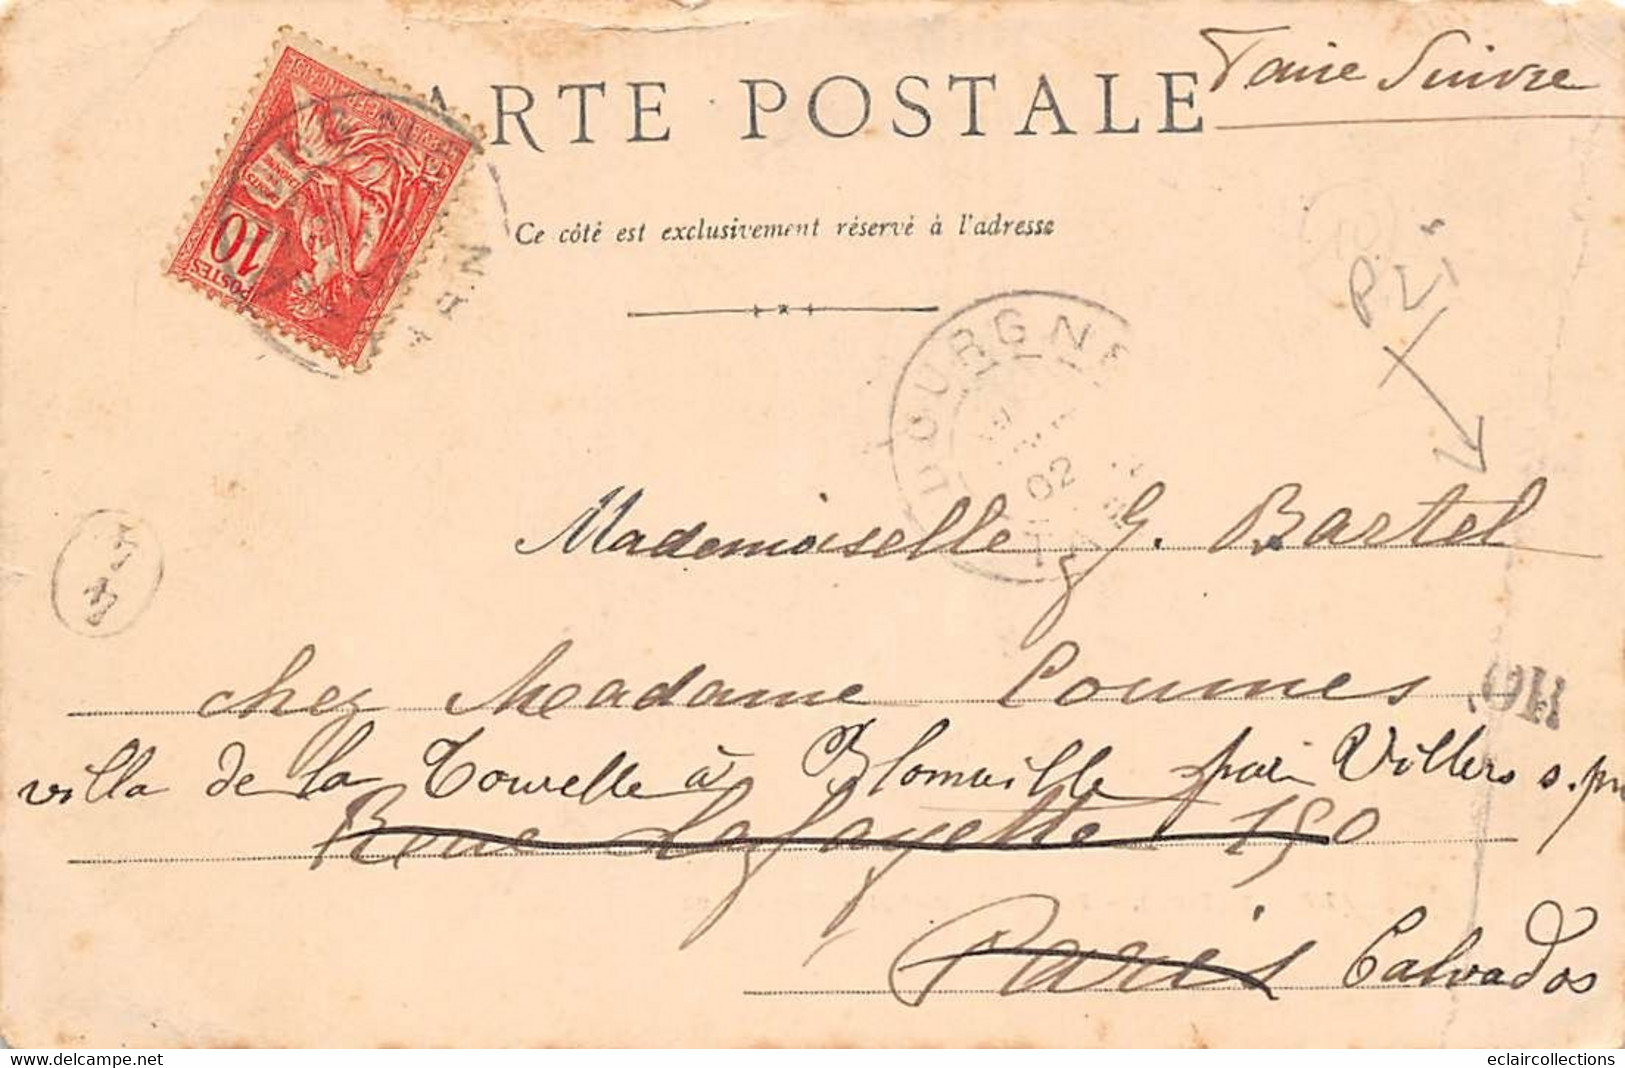 Faire Suivre
CARTE POSTALE
Ce côté est exclusivement réservé à l'adresse
10
POSTES
DOURGNE
02
Mademoiselle G. Bartel
chez Madame Coumes
OR
villa de la Tourelle à Blonville par Villers s.
Rue Lafayette 190
Paris Calvados
eclaircollections